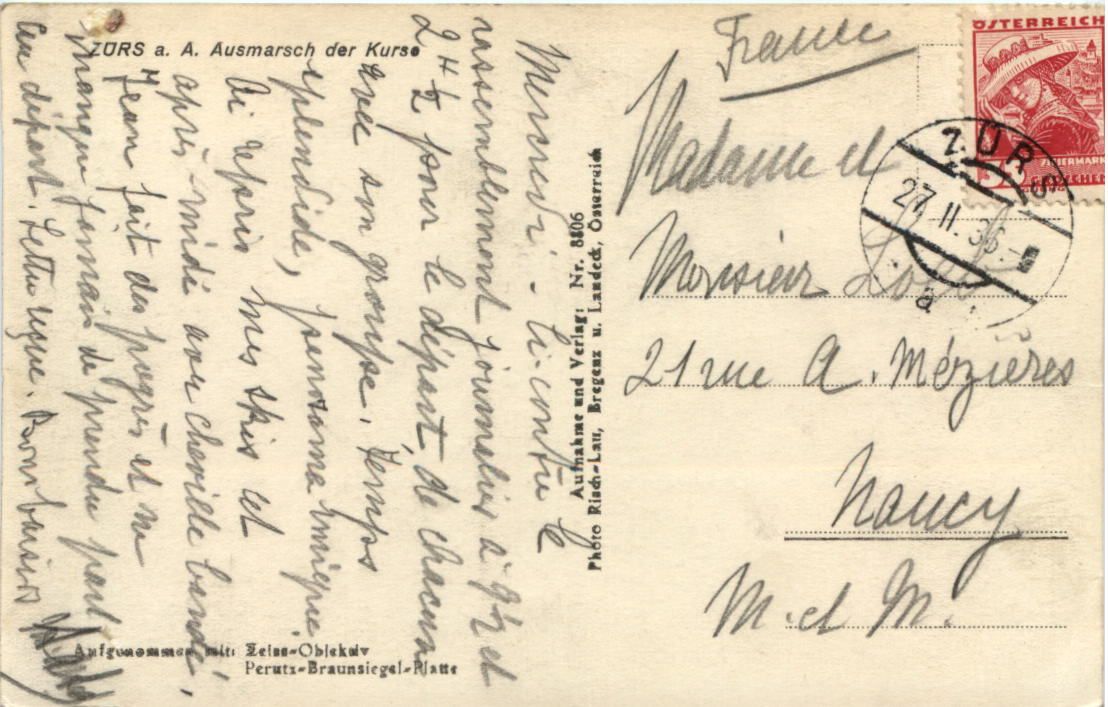 ZÜRS a. A. Ausmarsch der Kurse
Mercredi - Ci-contre le
rassemblement journalier à 9½ et
2 H½ pour le départ de chacun
avec son groupe. Temps
splendide, panorama unique
Ai repris mes skis et
après-midi avec cheville bandé,
Jean fait des progrès et ne
manque jamais de prendre part
au départ. Lettre reçue. Bons baisers
Aufnahme und Verlag: Nr. 8806
Photo Risch-Lau, Bregenz u. Landeck, Österreich
Aufgenommen mit: Zeiss-Objektiv
Perutz-Braunsiegel-Platte
France
Madame et
Monsieur
21 rue A. Mézières
Nancy
M. et M.
ÖSTERREICH
STEIERMARK
GROSCHEN
ZÜRS
27. II. 36.
a